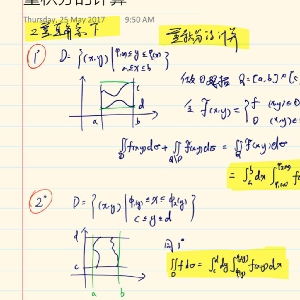 重积分的计算
Thursday, 25 May 2017 9:50 AM
重积分的计算
1° D = {(x,y) | φ₁(x) ≤ y ≤ φ₂(x)
a ≤ x ≤ b}
c
d
a b
Q = [a,b] × [c,
F(x,y) = { f (x,y) ∈ D
0 (x,y) ∈
∬_D f(x,y)dσ + ∬_{Q\D} F(x,y)dσ = ∬_Q F(x,y)dσ
= ∫_a^b dx ∫_{φ₁(x)}^{φ₂(x)} f
2° D = {(x,y) | φ₁(y) ≤ x ≤ φ₂(y)
c ≤ y ≤ d}
d
c
a b
同 1°
∬_D f dσ = ∫_c^d dy ∫_{φ₁(y)}^{φ₂(y)} f(x,y) dx